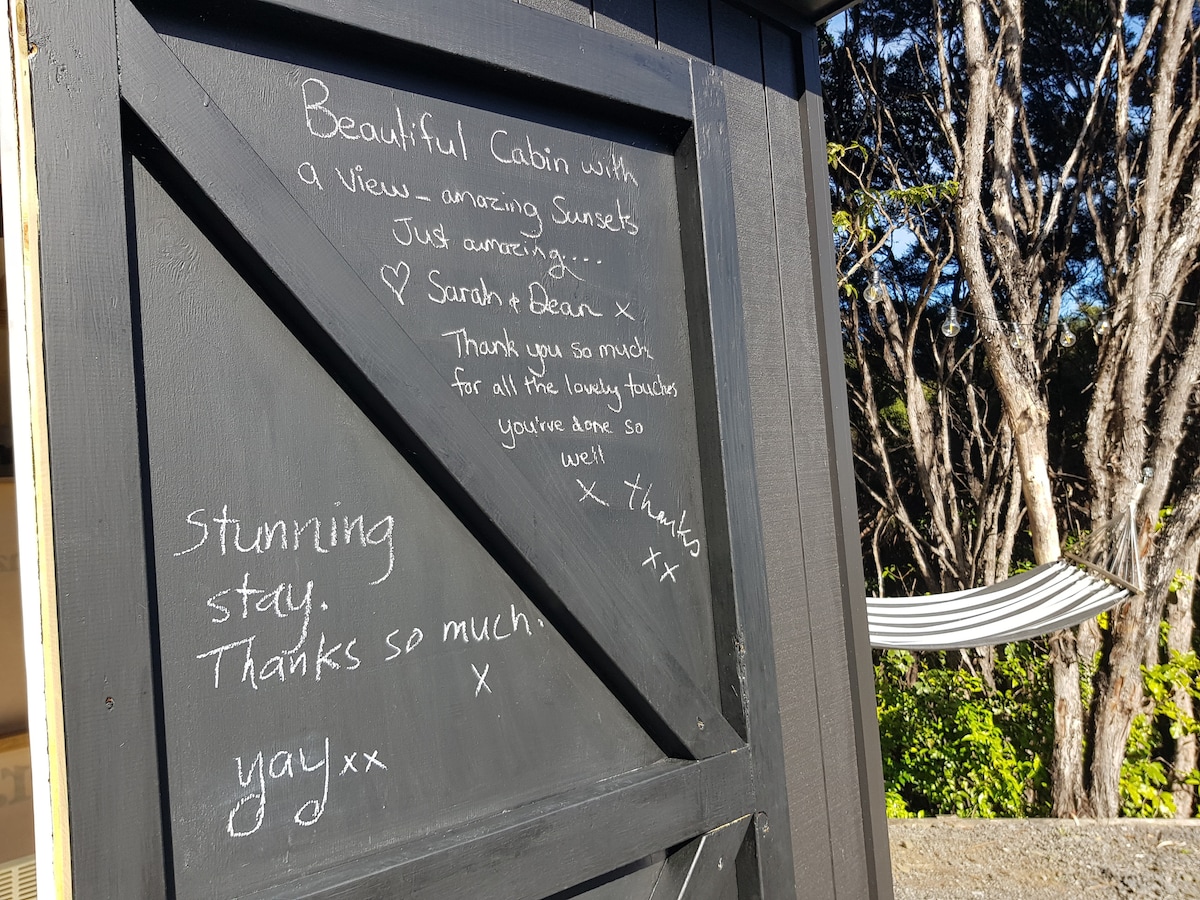 Beautiful Cabin with
a view - amazing Sunsets
Just amazing....
♡ Sarah & Dean x
Thank you so much
for all the lovely touches
you'rve done so
well
x Thanks
xx
Stunning
stay.
Thanks so much.
x
yay xx